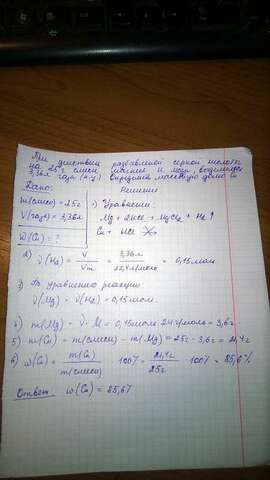 При действии разбавленной серной кислоты
на 25 г магния и меди выделилось
3,36л газа (н.у.) Определите массовую долю
Дано: Решение
m(смеси) = 25г 1) Уравнение:
V(газа) = 3,36л Mg + 2HCl → MgCl2 + H2↑
Cu + HCl
W(Cu) = ?
2) ν(H2) = V/Vm = 3,36л/22,4л/моль = 0,15моль
3) По уравнению реакции
ν(Mg) = ν(H2) = 0,15моль.
4) m(Mg) = ν · M = 0,15моль · 24г/моль = 3,6г.
5) m(Cu) = m(смеси) - m(Mg) = 25г - 3,6г = 21,4г.
6) w(Cu) = m(Cu)/m(смеси) · 100% = 21,4г/25г · 100% = 85,6%
Ответ: w(Cu) = 85,6%